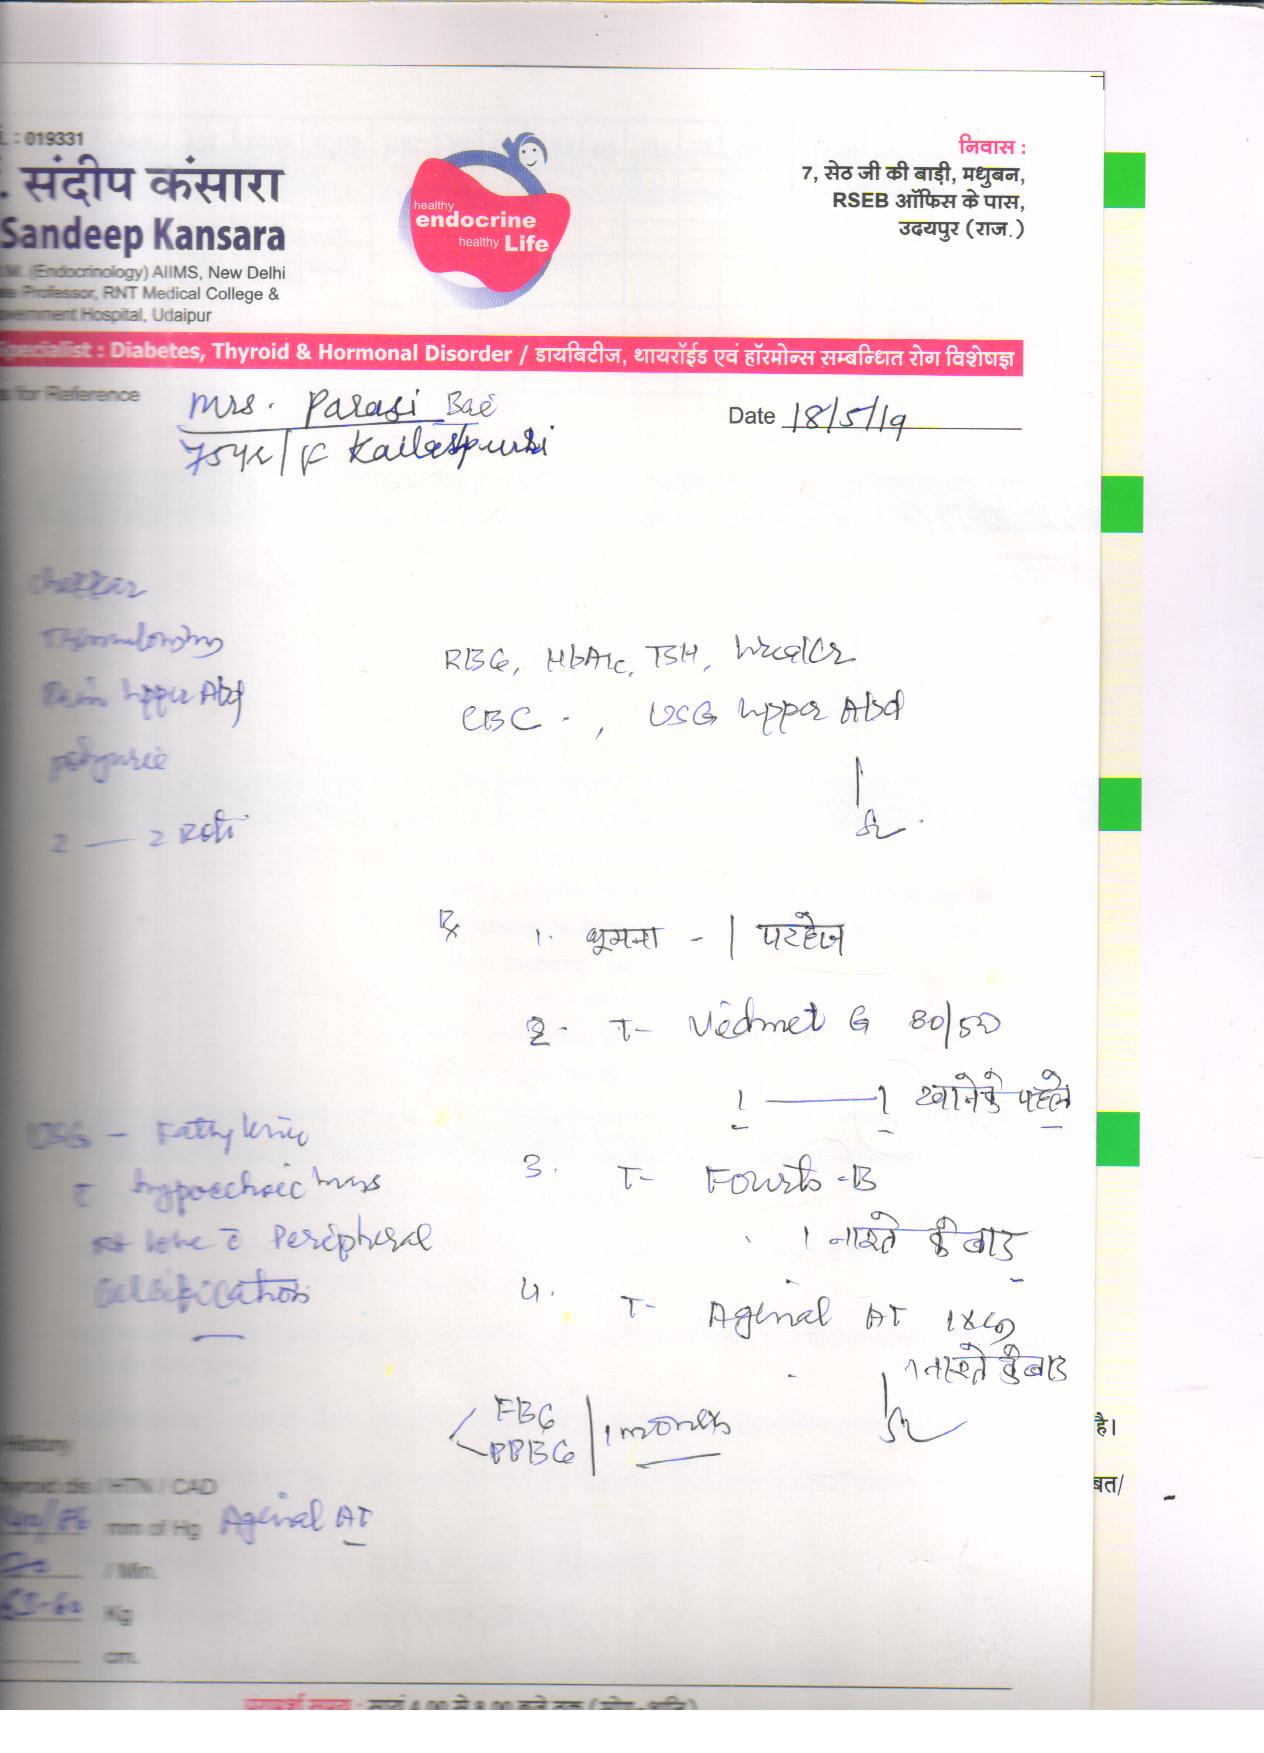 : 019331
. संदीप कंसारा
Sandeep Kansara
(Endocrinology) AIIMS, New Delhi
Professor, RNT Medical College &
Hospital, Udaipur
healthy
endocrine
healthy Life
निवास :
7, सेठ जी की बाड़ी, मधुबन,
RSEB ऑफिस के पास,
उदयपुर (राज.)
Specialist : Diabetes, Thyroid & Hormonal Disorder / डायबिटीज, थायरॉईड एवं हॉरमोन्स सम्बन्धित रोग विशेषज्ञ
for Reference
Mrs. Parasi Bai
Date 18/5/19
75yr/F Kailashpuri
chakkar
upper Abd
polyuria
2 — 2 Roti
RBG, HbA1c, TSH, Urea/Cr
CBC , USG upper Abd
Rx 1. घूमना - | परहेज
2. T- Vedmet G 80/50
1 — 1 खाने के पहले
3. T- Fourts-B
1 नाश्ते के बाद
4. T- Aginal AT 1x
1 नाश्ते के बाद
USG -
c hypoechoic mass
Rt lobe c Peripheral
Calcification
FBG
PPBG | 1 month
History
dis / HTN / CAD
mm of Hg Aginal AT
/ Min.
Kg
cm.
है।
बत/
परामर्श समय : सायं 4.00 से 8.00 बजे तक (सोम-शनि)